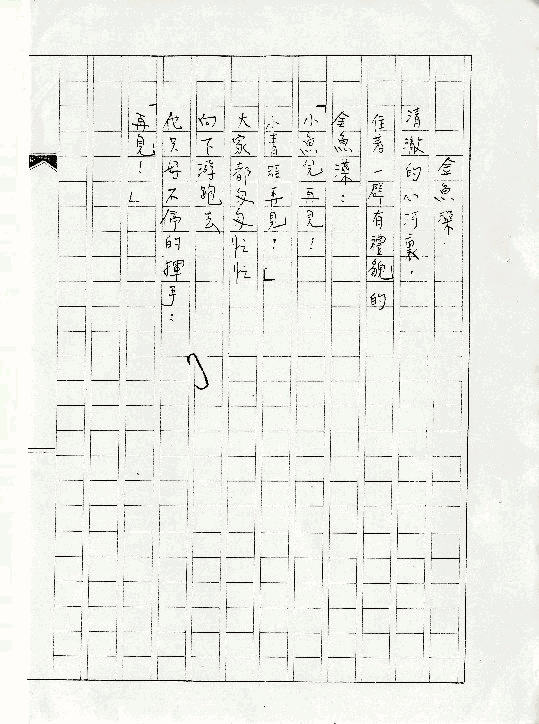 金魚藻
清澈的小河裏，
住着一群有禮貌的
金魚藻：
「小魚兒再見！
小青蛙再見！」
大家都匆匆忙忙
向下游跑去
他只好不停的揮手：
「再見！」